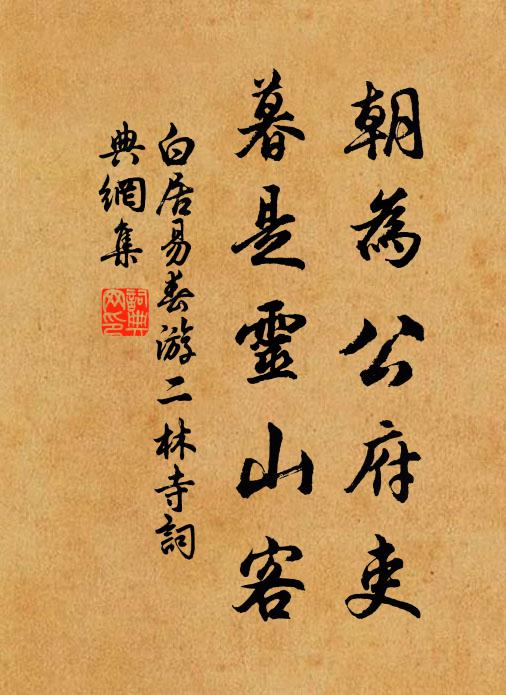 朝為公府吏
暮是靈山客
白居易春游二林寺詞
典網集
詞典
网印